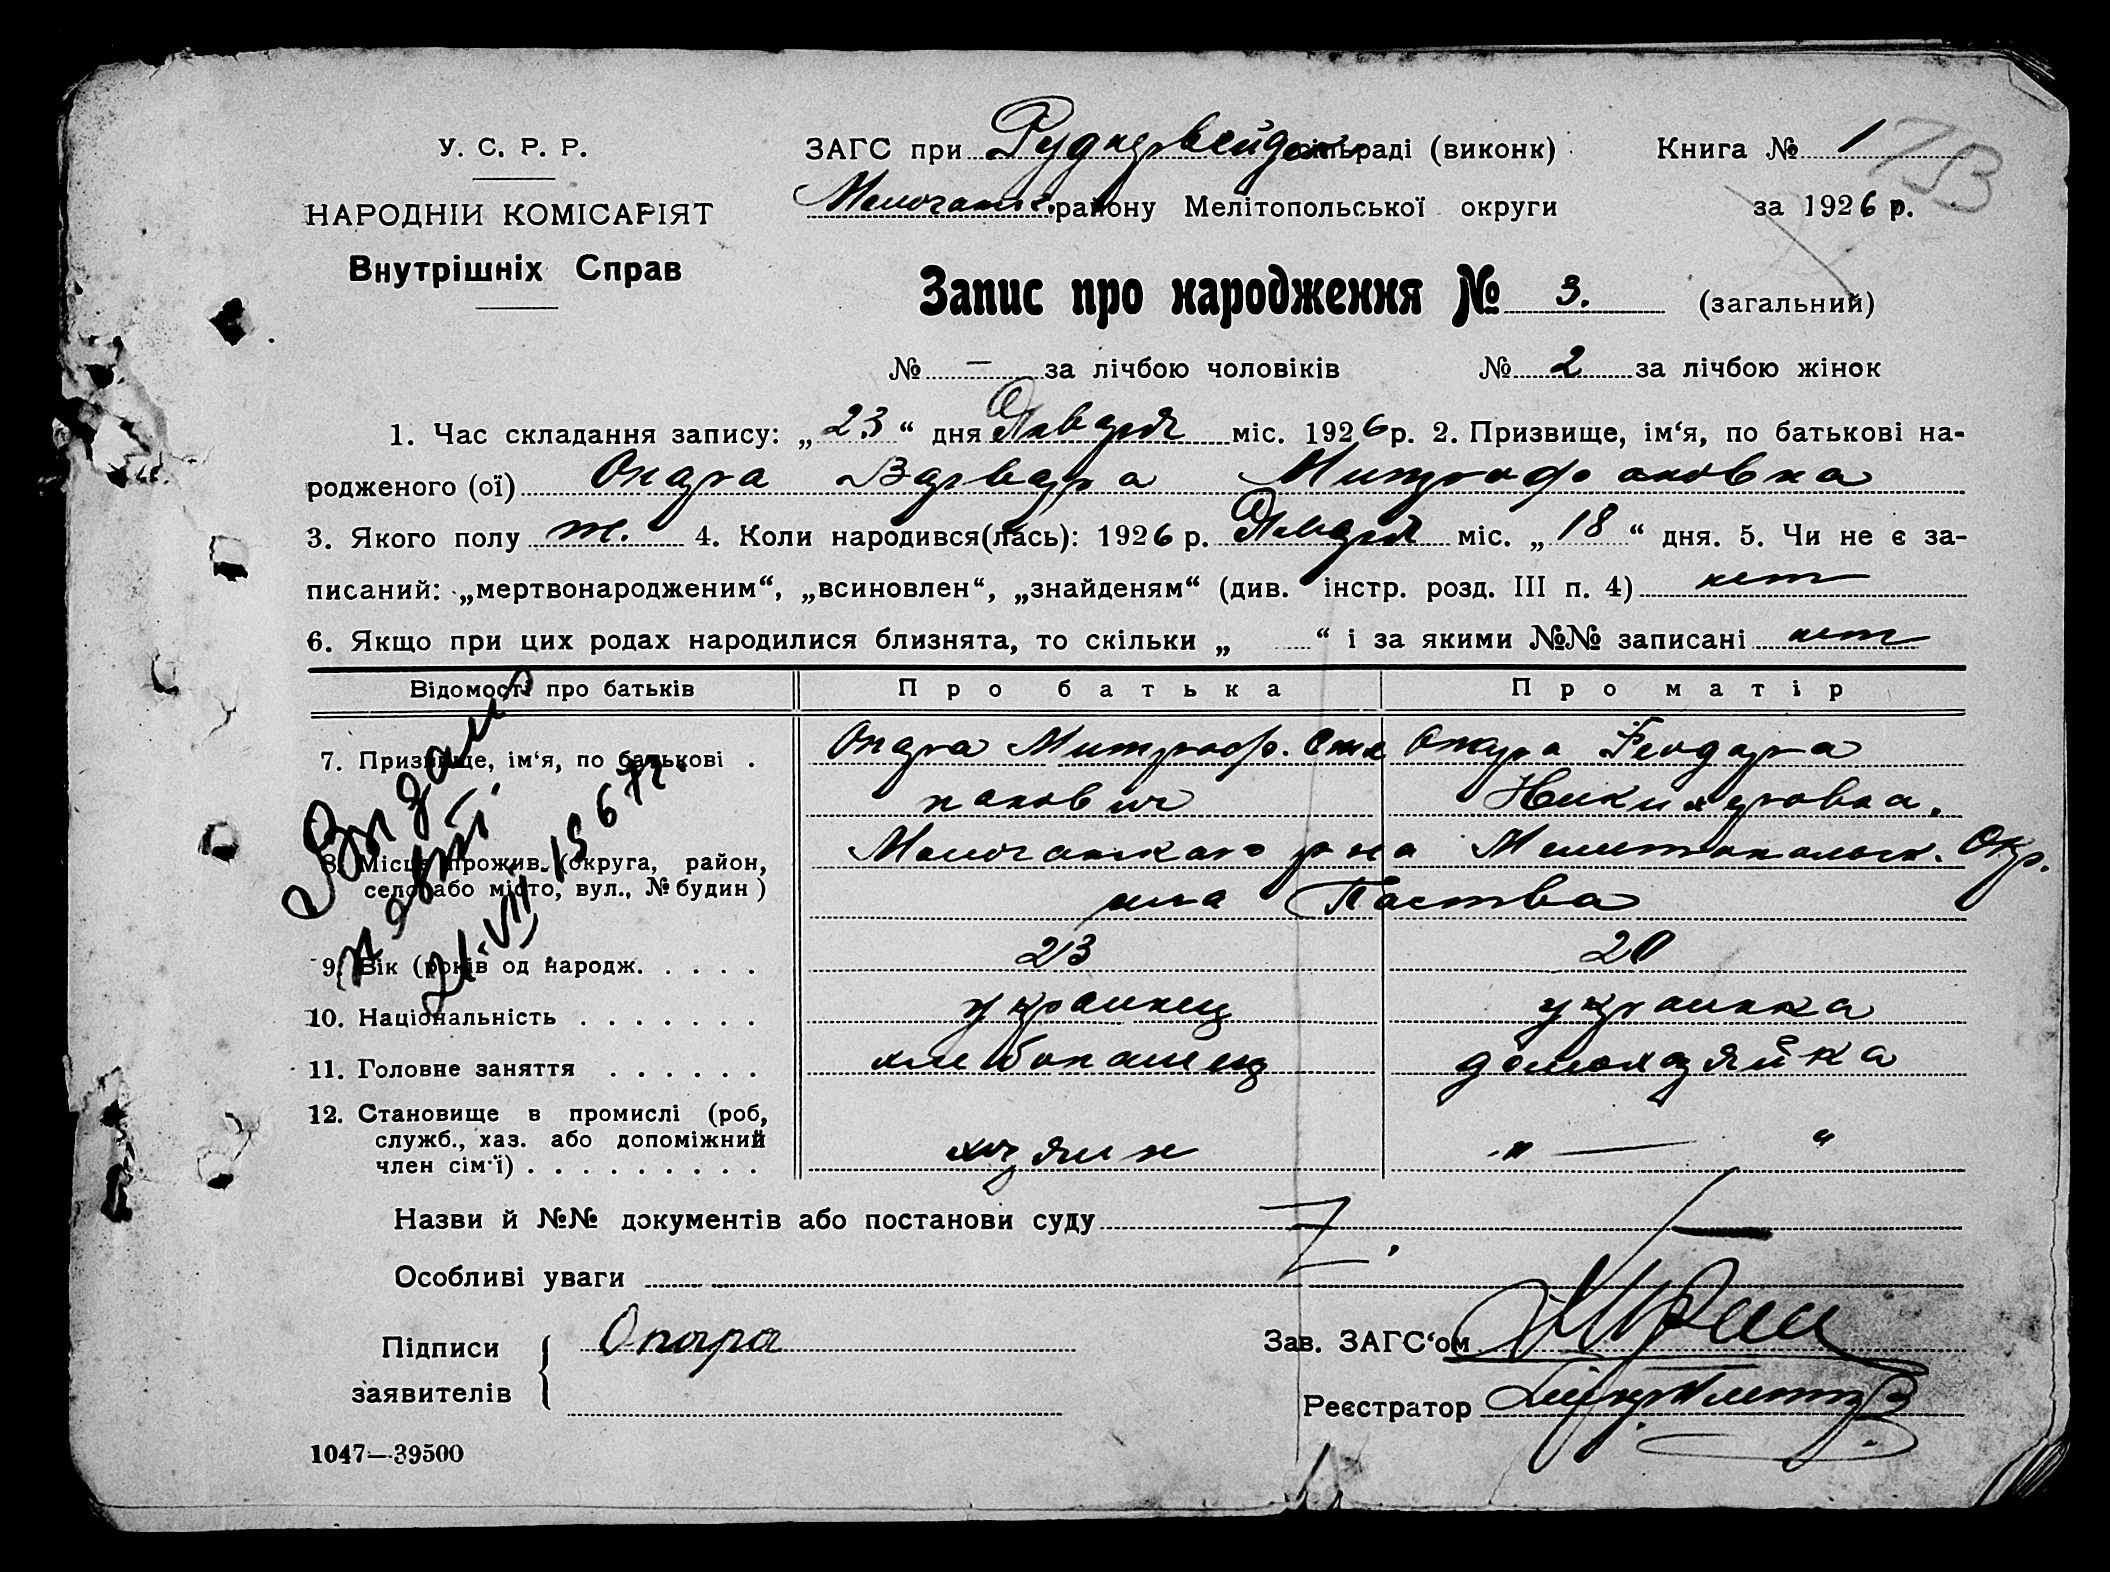 У. С. Р. Р.
НАРОДНІЙ КОМІСАРІЯТ
Внутрішніх Справ
ЗАГС при сільраді (виконк) Книга № 1
району Мелітопольської округи за 1926 р.
Запис про народження № 3. (загальний)
№ — за лічбою чоловіків № 2 за лічбою жінок
1. Час складання запису: „23“ дня Января міс. 1926 р. 2. Призвище, ім‘я, по батькові на-
родженого (ої) Опара Варвара Митрофановна
3. Якого полу ж. 4. Коли народився(лась): 1926 р. Января міс. „18“ дня. 5. Чи не є за-
писаний: „мертвонародженим“, „всиновлен“, „знайденям“ (див. інстр. розд. III п. 4) нет
6. Якщо при цих родах народилися близнята, то скільки „ “ і за якими №№ записані нет
Відомості про батьків Про батька Про матір
7. Призвище, ім‘я, по батькові . Опара Митроф. Сте Опара Феодора
панович
8. Місце прожив. (округа, район, Молочанского р на Мелитопольск. Окр.
село або місто, вул., № будин)
9. Вік (років од народж. . . . . 23 20
10. Національність . . . . . . . украинец украинка
11. Головне заняття . . . . . . хлебопашец домохазяйка
12. Становище в промислі (роб,
служб., хаз. або допоміжний
член сім‘ї) . . . . . . . . . хозяин „ — “
Назви й №№ документів або постанови суду
Особливі уваги
Підписи
заявителів
Опара
Зав. ЗАГС‘ом
Реєстратор
1047—39500